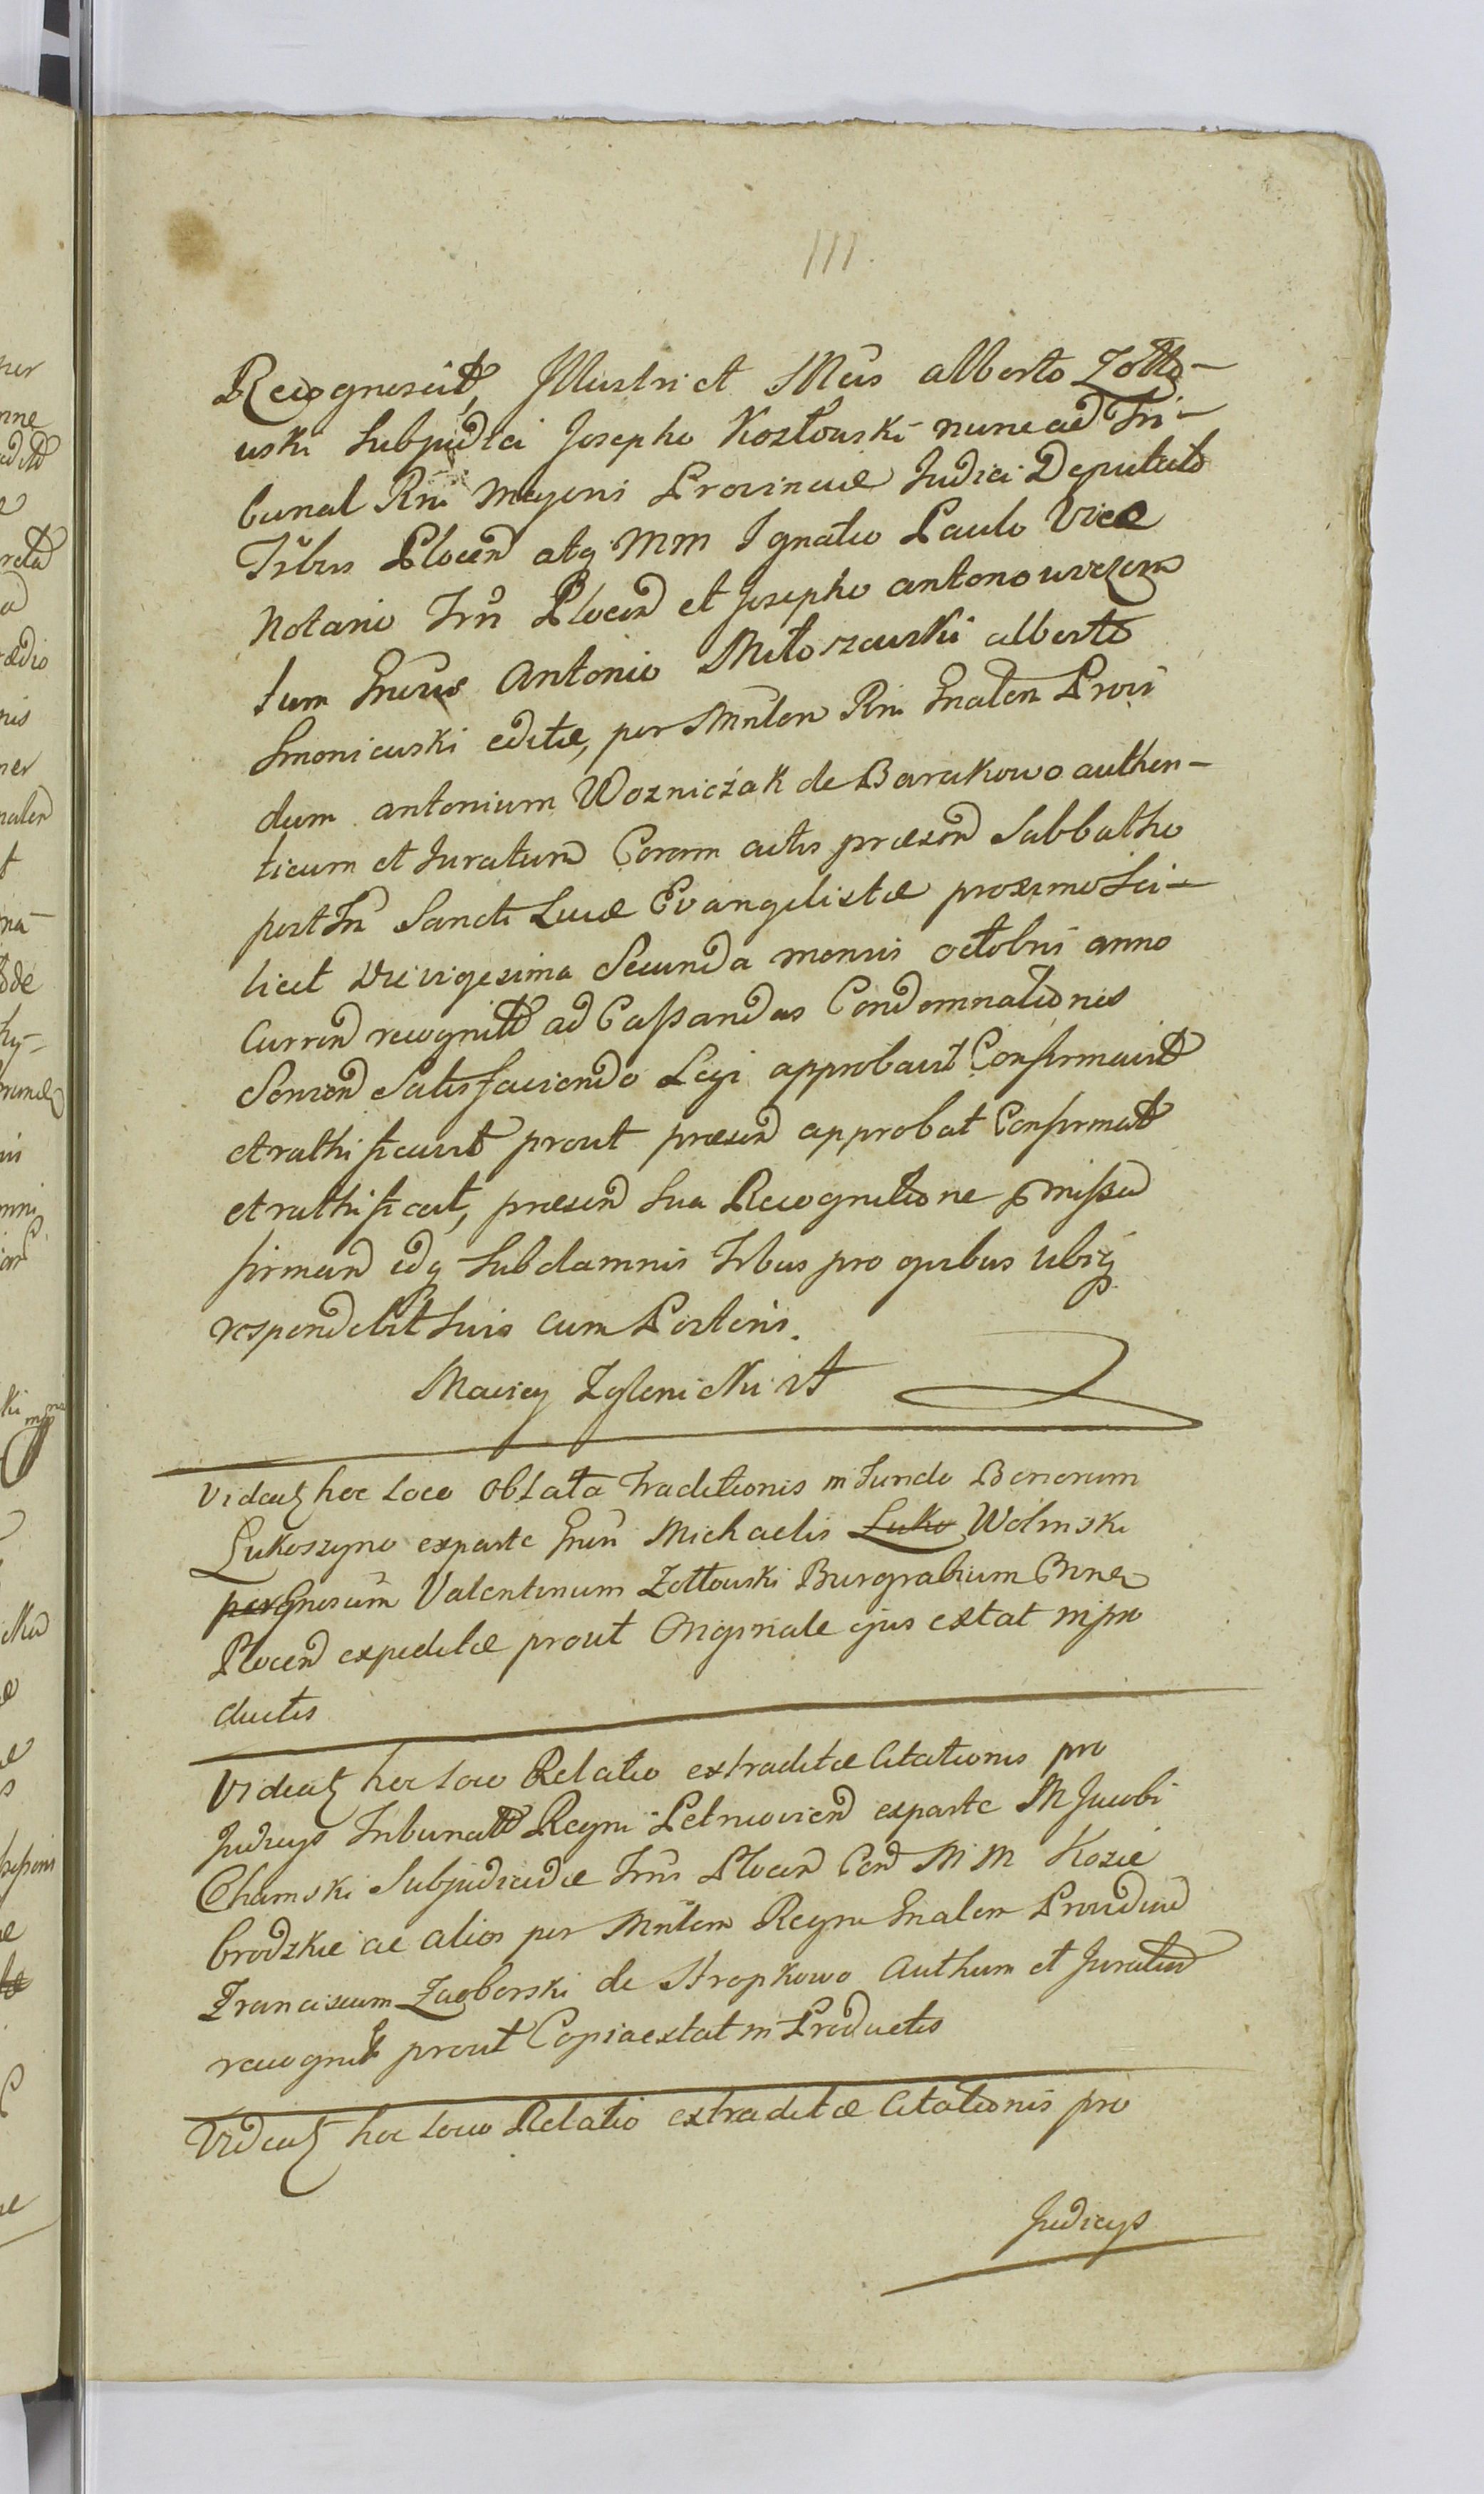 111.
Recognoscit, Illustri et Mcis alberto Zołto-
wski Subjudici Josepho Kozłowski nunc ad Tri-
bunal Rni Mayoris Provinciae Judici Deputato
Trbus Plocen atq MM Ignatio Paulo Vice
Notario Trri Plocen et Josepho antonowiczom
tum Gnrus Antonio Miłoszewski alberto
Smoniewski editae, per Mnlem Rni Gnalem Provi
dum antonium Wozniczak de Barakowo authen-
ticum et Juratum Coram actis praesen Sabbatho
post Fn Sancti Lucae Evangelistae proximo Sci-
licet Die vigesima Secunda mensis octobris anno
Curren recognit ad Cassandas Condemnationes
Serien Satisfaciendo Legi approbavit Confirmavit
et rathificavit prout praesen approbat Confirmat
et rathificat, praesen Sua Recognitione pmissa
firman idq Sub damnis Trbus pro quibus ubiq
respondebit Suis cum Posteris.
Maciey Zglenicki
Videatz hoc Loco Oblata Traditionis in Fundo Bonorum
Lukoszyno exparte Gnri Michaelis Luko Wolinski
per Gnosum Valentinum Zołtowski Burgrabium
Plocen expeditae prout Originale ejus extat in pro
ductis
Videatz hoc Loco Relatio extraditae Citationis pro
Judicys Tribunalt Regni Petricovien exparte M Jacobi
Chamski Subjudicidae Trris Plocen Con MM Kozie
brodzkie ac alios per Mnlem Regni Gnalem Providum
Franciscum Zagborski de Stropkowo Authum et Juratum
recognit prout Copia extat in Productis
Videatz hoc Loco Relatio extraditae Citationis pro
Judicys